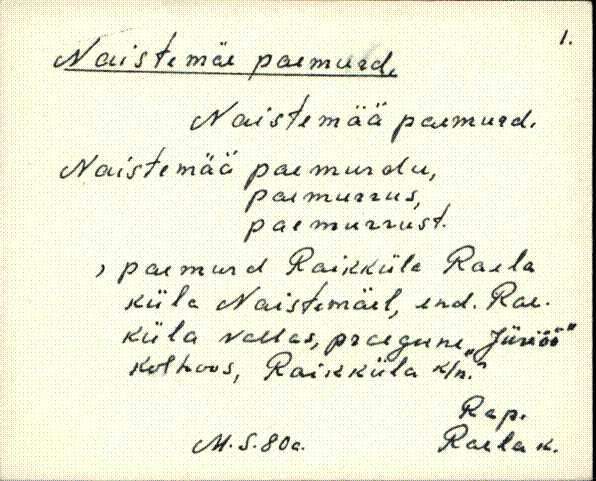 1.
Naistemäe paemurd.
Naistemää paemurd.
Naistemää paemurdu,
paemurrus,
paemurrust.
, paemurd Raikküla Raela
küla Naistemäel, end. Rae-
küla vallas, praegune „Jüriöö"
kolhoos, Raikküla k/n.
Rap.
M. S. 80a. Raela k.